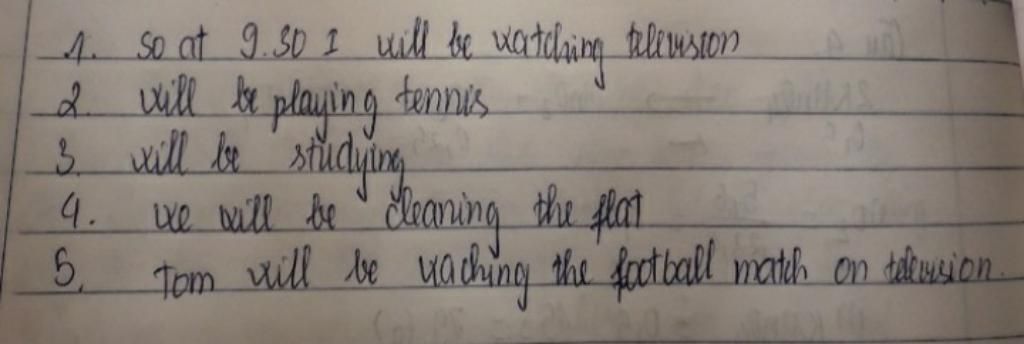 1. so at 9.30 I will be watching television
2. will be playing tennis
3. will be studying
4. we will be cleaning the flat
5. Tom will be waching the football match on television.